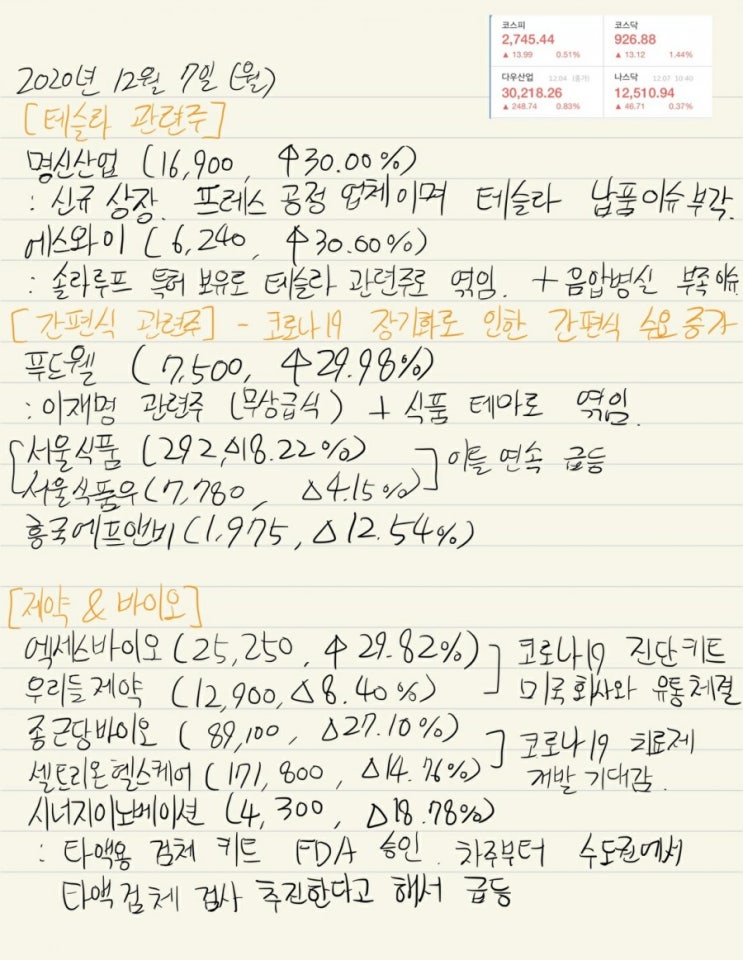 코스피
2,745.44
▲ 13.99 0.51%
코스닥
926.88
▲ 13.12 1.44%
다우산업 12.04 (종가)
30,218.26
▲ 248.74 0.83%
나스닥 12.07 10:40
12,510.94
▲ 46.71 0.37%
2020년 12월 7일 (월)
[테슬라 관련주]
명신산업 (16,900, ↑30.00%)
: 신규 상장. 프레스 공정 업체이며 테슬라 납품이슈부각.
에스와이 (6,240, ↑30.00%)
: 솔라루프 특허 보유로 테슬라 관련주로 엮임. + 음압병실 부족이슈
[간편식 관련주] - 코로나19 장기화로 인한 간편식 수요 증가
푸드웰 (7,500, ↑29.98%)
: 이재명 관련주 (무상급식) + 식품 테마로 엮임.
서울식품 (292, △18.22%)
서울식품우 (7,780, △4.15%)
이틀 연속 급등
흥국에프엔비 (1,975, △12.54%)
[제약 & 바이오]
엑세스바이오 (25,250, ↑29.82%)
우리들제약 (12,900, △8.40%)
코로나19 진단키트
미국회사와 유통체결
종근당바이오 (89,100, △27.10%)
셀트리온헬스케어 (171,800, △14.76%)
코로나19 치료제
개발 기대감.
시너지이노베이션 (4,300, △18.78%)
: 타액용 검체 키트 FDA 승인. 차주부터 수도권에서
타액검체 검사 추진한다고 해서 급등